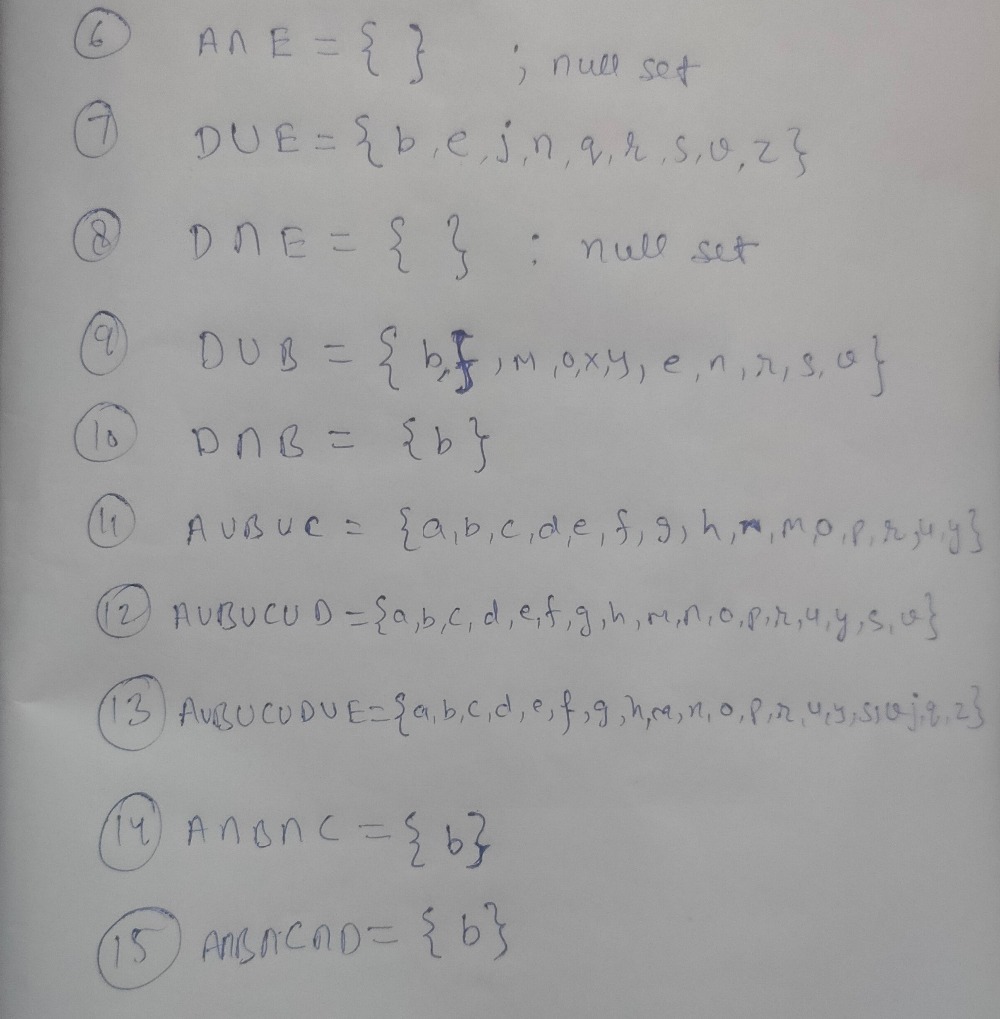 6 A∩E = { } ; null set
7 D∪E = {b, e, j, n, q, r, s, v, z}
8 D∩E = { } : null set
9 D∪B = {b, f, m, o, x, y, e, n, r, s, v}
10 D∩B = {b}
11 A∪B∪C = {a, b, c, d, e, f, g, h, m, o, p, r, u, y}
12 A∪B∪C∪D = {a, b, c, d, e, f, g, h, m, n, o, p, r, u, y, s, v}
13 A∪B∪C∪D∪E = {a, b, c, d, e, f, g, h, m, n, o, p, r, u, y, s, v, j, q, z}
14 A∩B∩C = {b}
15 A∩B∩C∩D = {b}